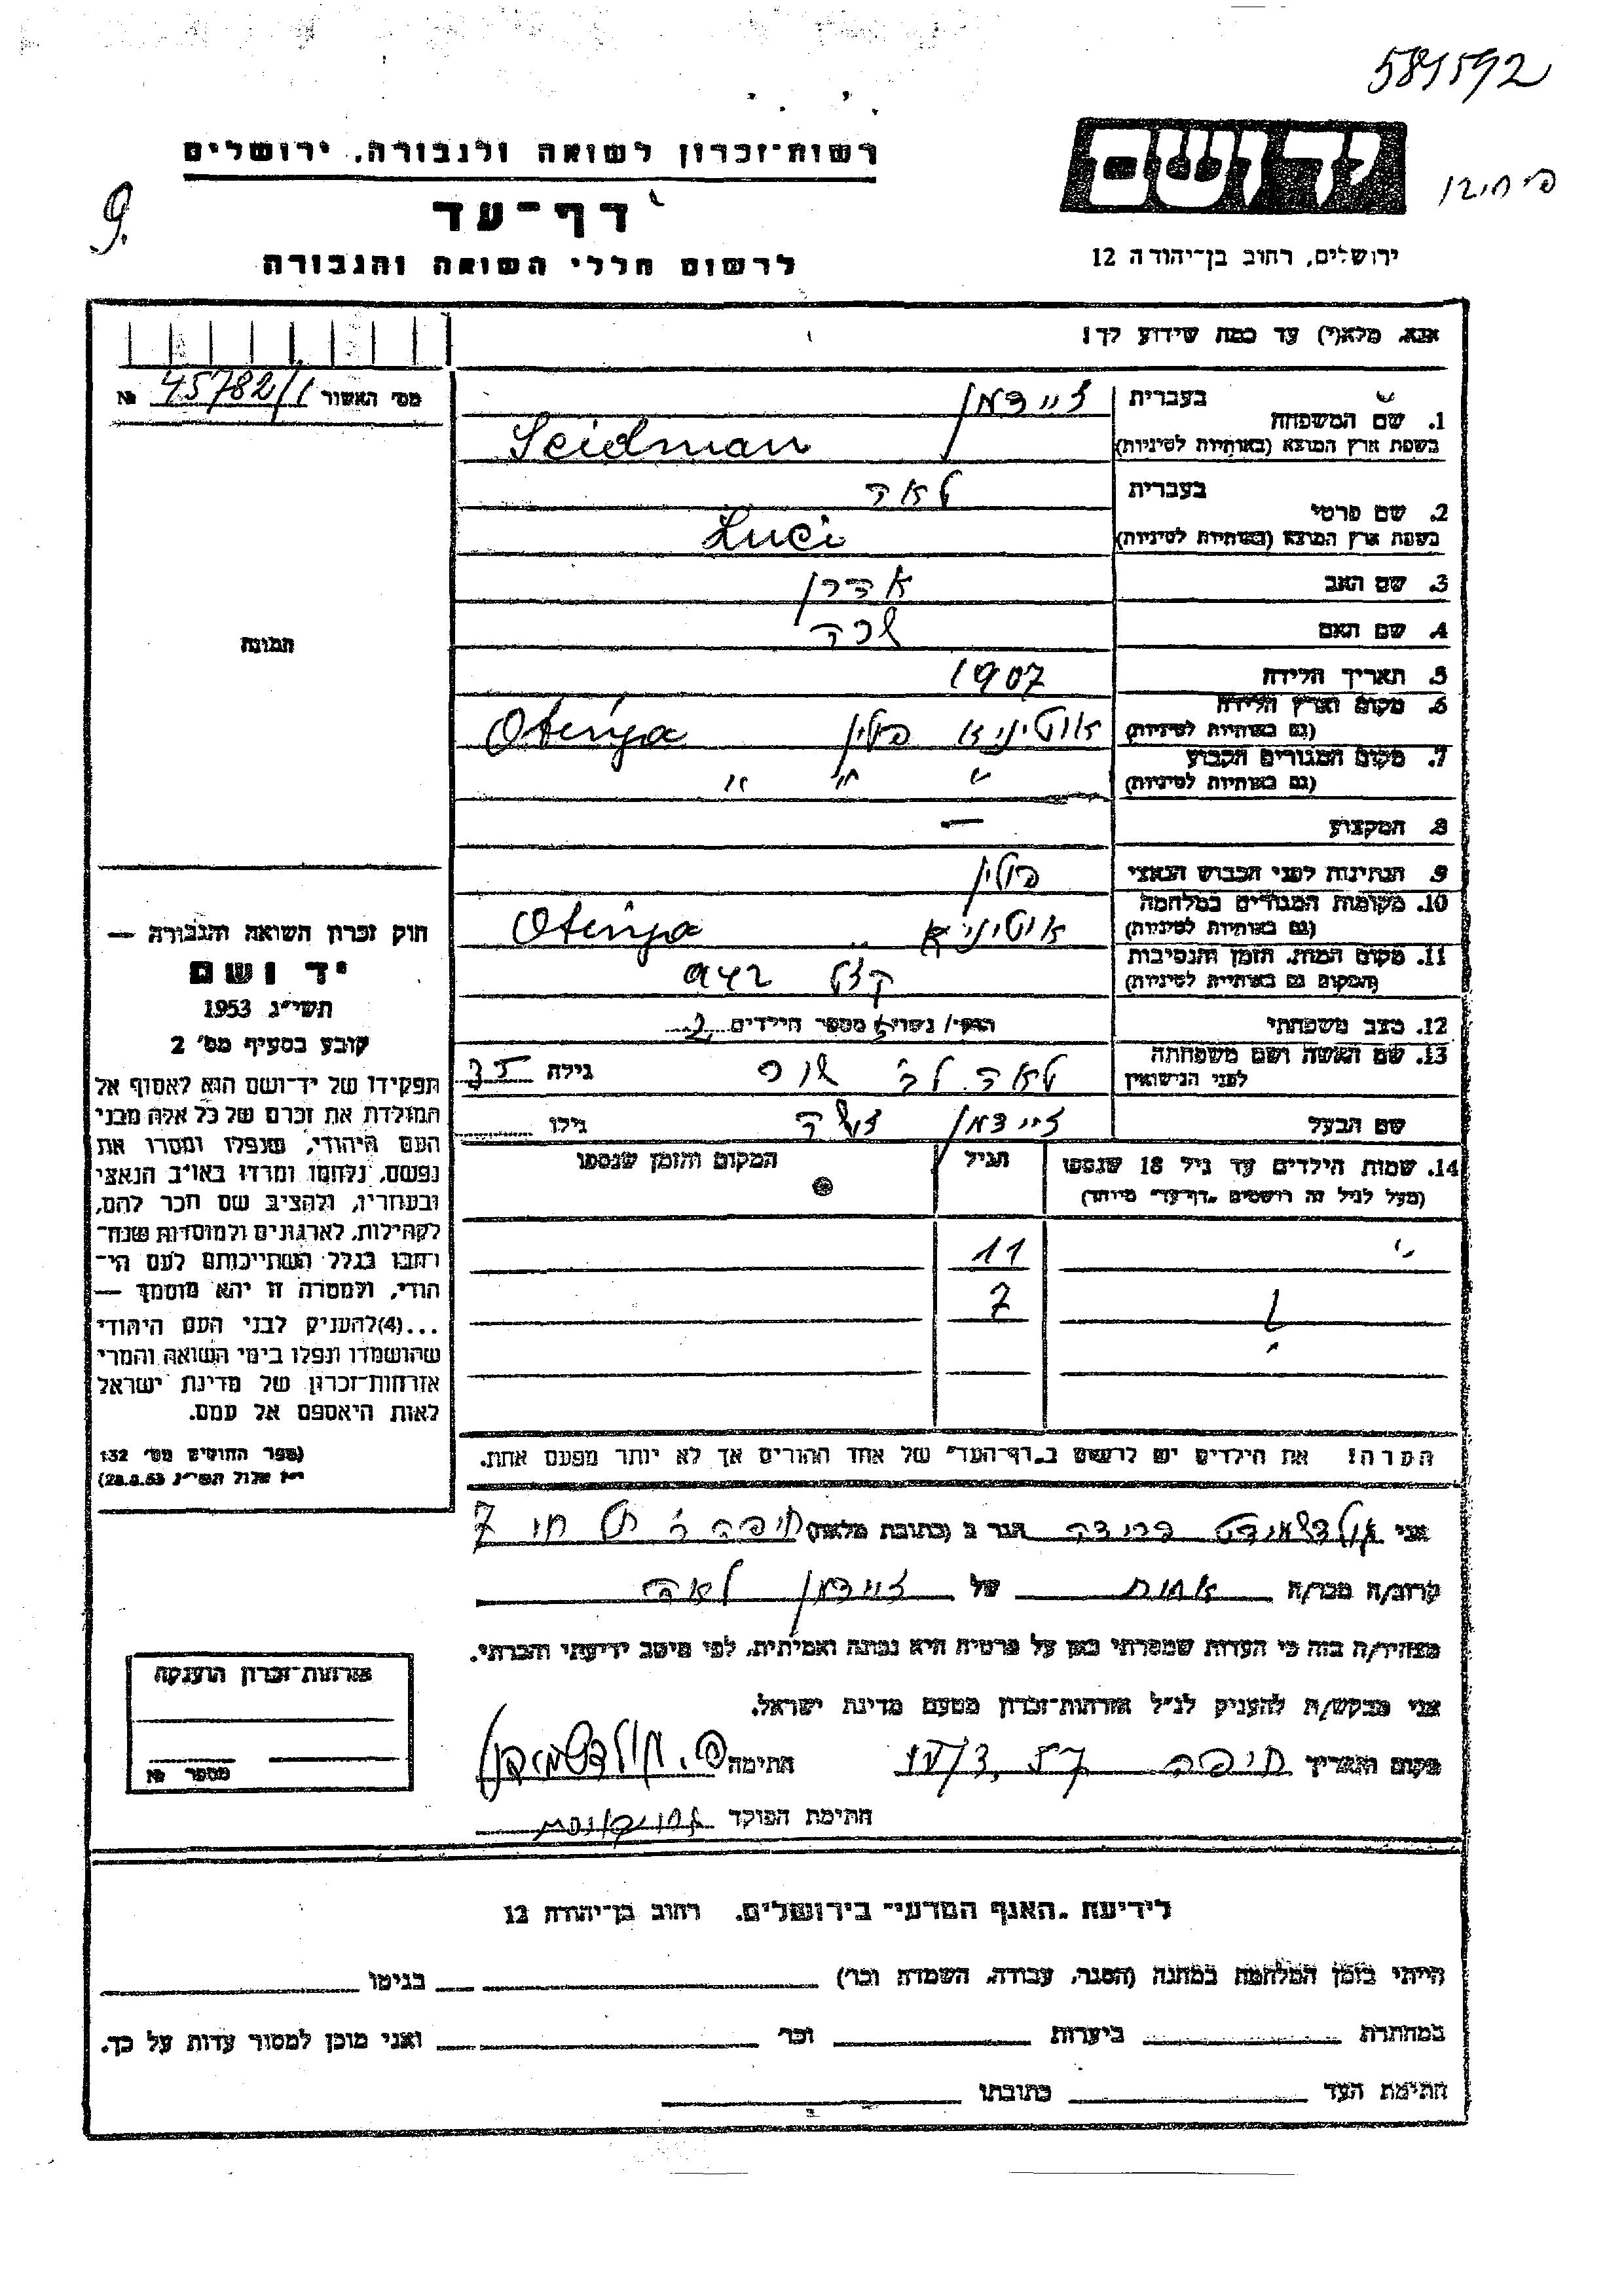 589592
רשות-זכרון לשואה ולגבורה, ירושלים
יד ושם
דף-עד
9.
לרשום חללי השואה והגבורה
ירושלים, רחוב בן-יהודה 12
אנא, מלא(י) עד כמה שידוע לך!
מס׳ האשור 45782/1 №
1. שם המשפחה
בעברית זיידמן
בשפת ארץ המוצא (באותיות לטיניות) Seidman
2. שם פרטי
בעברית לאה
בשפת ארץ המוצא (באותיות לטיניות) Luci
3. שם האב אהרן
4. שם האם
5. תאריך הלידה 1907
6. מקום וארץ הלידה
(גם באותיות לטיניות) אוטיניא פולין Otinja
7. מקום המגורים הקבוע
(גם באותיות לטיניות) " " "
8. המקצוע —
9. הנתינות לפני הכבוש הנאצי פולין
10. מקומות המגורים במלחמה
(גם באותיות לטיניות) אוטיניא Otinja
11. מקום המות, הזמן והנסיבות
(המקום גם באותיות לטיניות) 942
12. מצב משפחתי נשוי/א מספר הילדים 2
13. שם האשה ושם משפחתה
לפני הנישואין לאה לב׳ גילה 35
שם הבעל זיידמן גילו
14. שמות הילדים עד גיל 18 שנספו
(מעל לגיל זה רושמים "דף-עד" מיוחד)
הגיל
המקום והזמן שנספו
11
7
הערה! את הילדים יש לרשום ב"דף-העד" של אחד ההורים אך לא יותר מפעם אחת.
תמונה
חוק זכרון השואה והגבורה —
יד ושם
תשי"ג 1953
קובע בסעיף מס׳ 2
תפקידו של יד-ושם הוא לאסוף אל
המולדת את זכרם של כל אלה מבני
העם היהודי, שנפלו ומסרו את
נפשם, נלחמו ומרדו באויב הנאצי
ובעוזריו, ולהציב שם וזכר להם,
לקהילות, לארגונים ולמוסדות שנח-
רבו בגלל השתייכותם לעם הי-
הודי, ולמטרה זו יהא מוסמך —
...(4)להעניק לבני העם היהודי
שהושמדו ונפלו בימי השואה והמרי
אזרחות-זכרון של מדינת ישראל
לאות היאספם אל עמם.
(ספר החוקים מס׳ 132
י"ז אלול תשי"ג 28.8.53)
אני גולדשמידט פרידה הגר ב (כתובת מלאה) חיפה תל חי 7
קרוב/ה מכר/ה אחות של זיידמן לאה
מצהיר/ה בזה כי העדות שמסרתי כאן על פרטיה היא נכונה ואמיתית, לפי מיטב ידיעתי והכרתי.
אני מבקש/ת להעניק לנ"ל אזרחות-זכרון מטעם מדינת ישראל.
מקום ותאריך חיפה חתימה פ. גולדשמידט
חתימת הפוקד
אזרחות-זכרון הוענקה
מספר №
לידיעת "האגף המדעי" בירושלים, רחוב בן-יהודה 12
הייתי בזמן המלחמה במחנה (הסגר, עבודה, השמדה וכו׳) בגיטו
במחתרת ביערות וכו׳ ואני מוכן למסור עדות על כך.
חתימת העד כתובתו